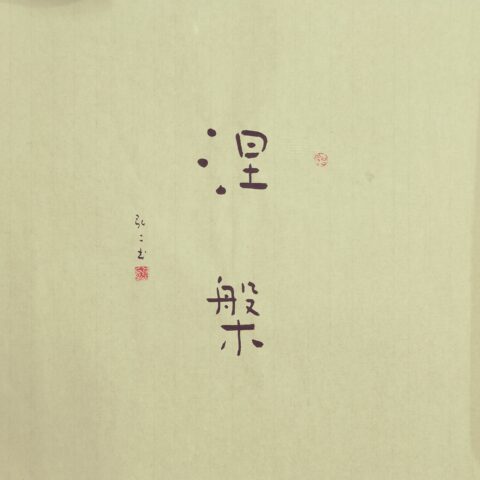 涅槃
弘一书